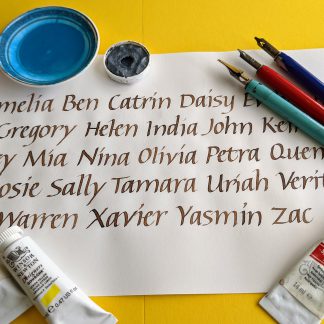 melia Ben Catrin Daisy E
Gregory Helen India John Ke
y Mia Nina Olivia Petra Quen
osie Sally Tamara Uriah Verit
Warren Xavier Yasmin Zac
WINSOR & NEWTON
Designers